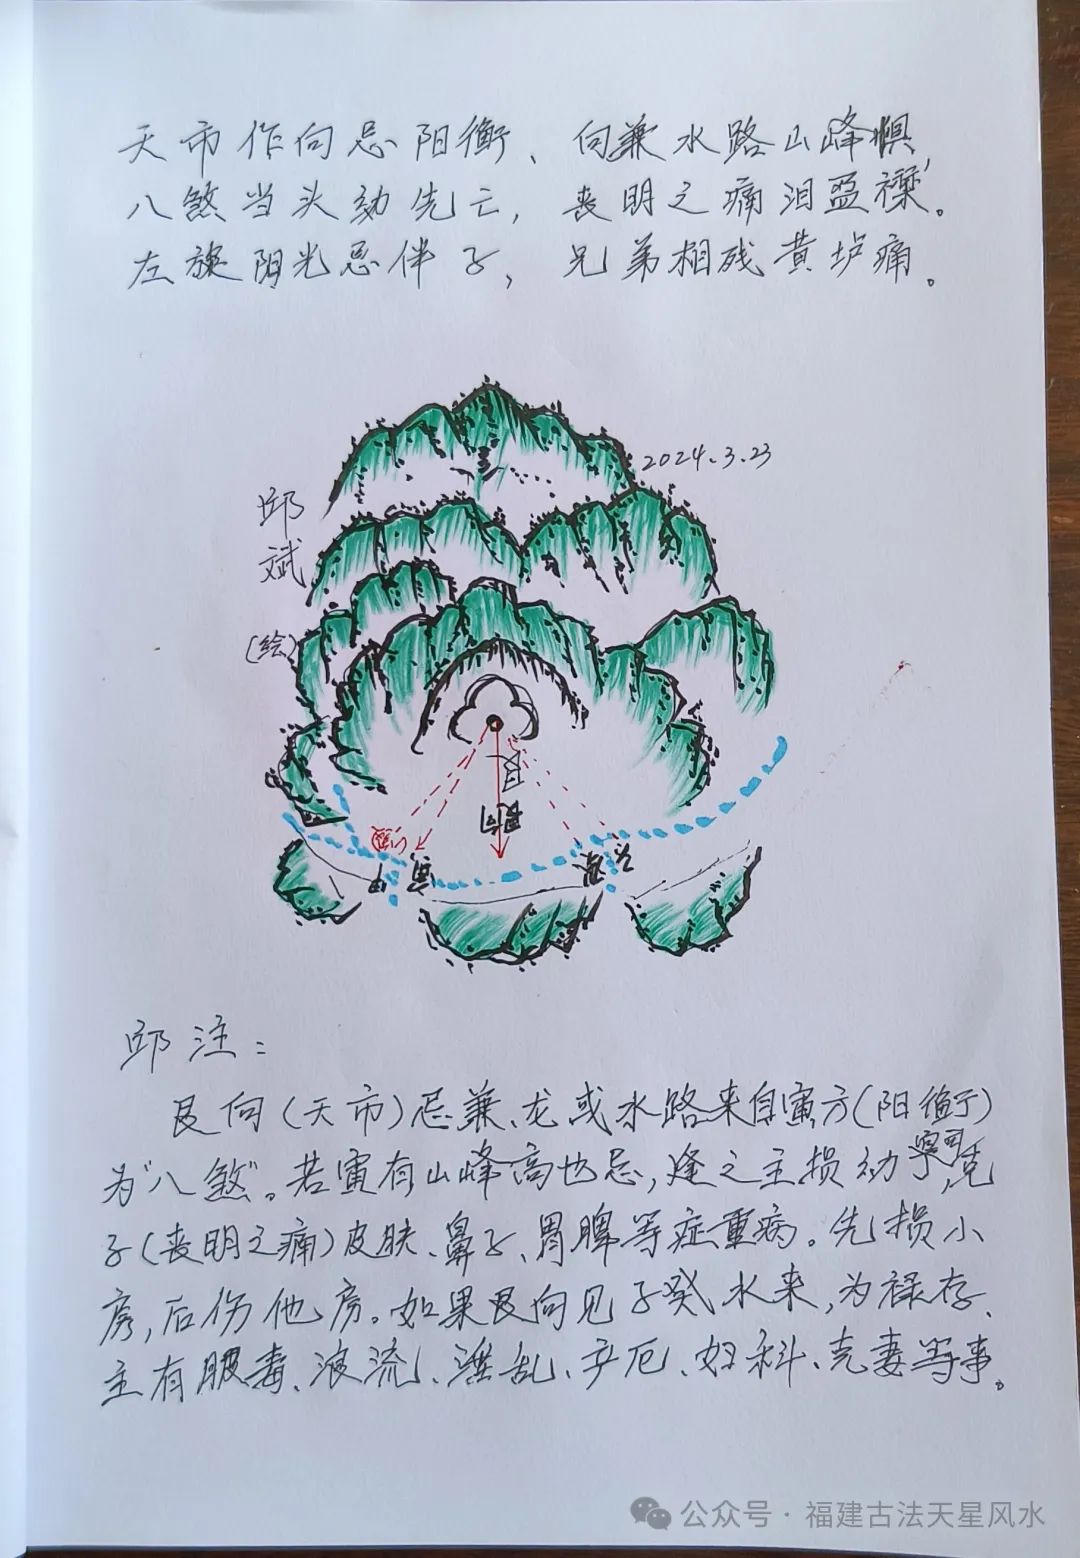 天市作向忌阳衡、向兼水路山峰惧,
八煞当头幼先亡,丧明之痛泪盈襟。
左旋阳光忌伴子,兄弟相残黄垆痛。
2024.3.23
邱斌
(绘)
艮
艮向
寅
甲
邱注:
艮向(天市)忌兼、龙或水路来自寅方(阳衡)
为"八煞"。若寅有山峰高也忌,逢之主损幼,克
子(丧明之痛)皮肤、鼻子、胃脾等症重病。先损小
房,后伤他房。如果艮向见子癸水来,为禄存、
主有服毒、流、淫乱、产厄、妇科、克妻等事。
公众号·福建古法天星风水